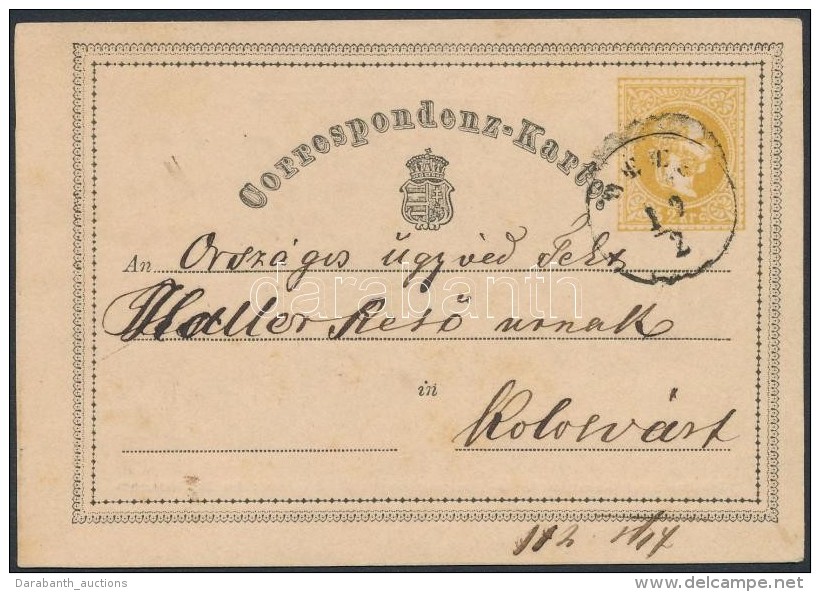 Correspondenz-Karte.
2 kr
19
2
An Országos ügyvéd Tekt
Haller Rezső urnak
in
Kolosvárt
darabanth
Darabanth_auctions
www.delcampe.net